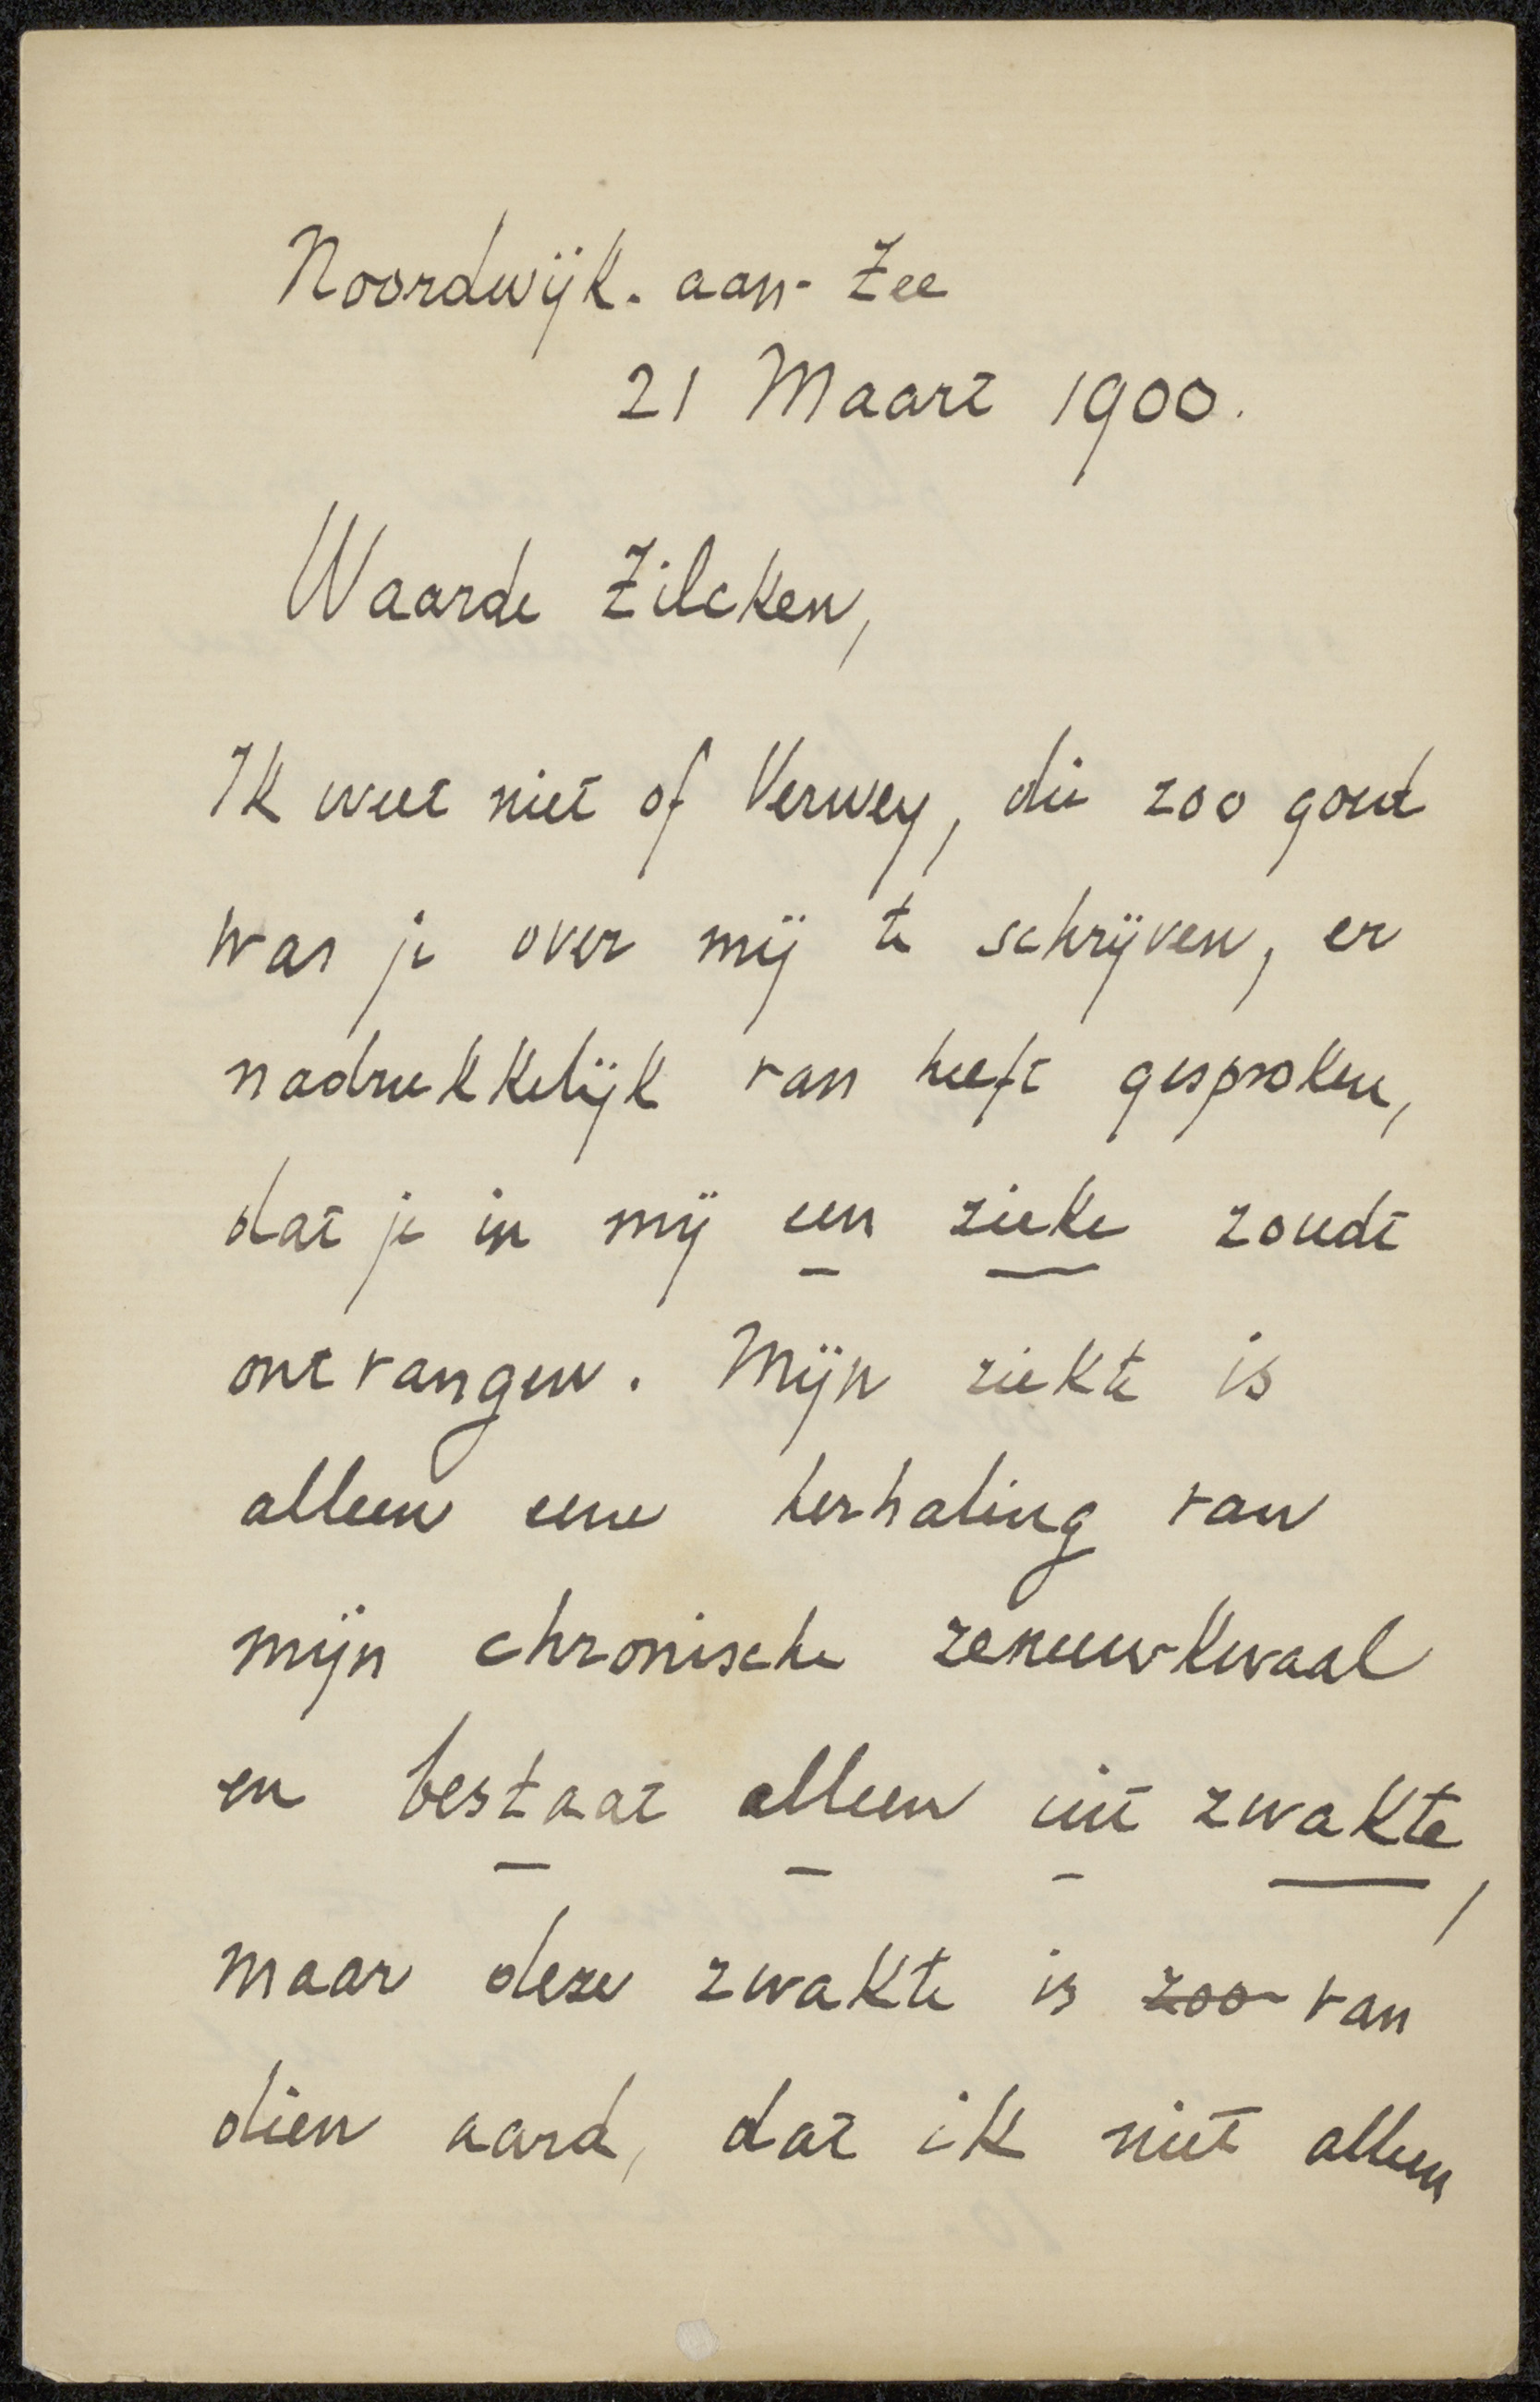 Noordwijk. aan- Zee
21 Maart 1900.
Waarde Zilcken,
Ik weet niet of Verwey, die zoo goed
was je over mij te schrijven, er
nadrukkelijk van heeft gesproken,
dat je in mij een zieke zoudt
ontvangen. Mijn ziekte is
alleen eene herhaling van
mijn chronische zenuwkwaal
en bestaat alleen uit zwakte,
maar deze zwakte is zoo van
dien aard, dat ik niet alleen